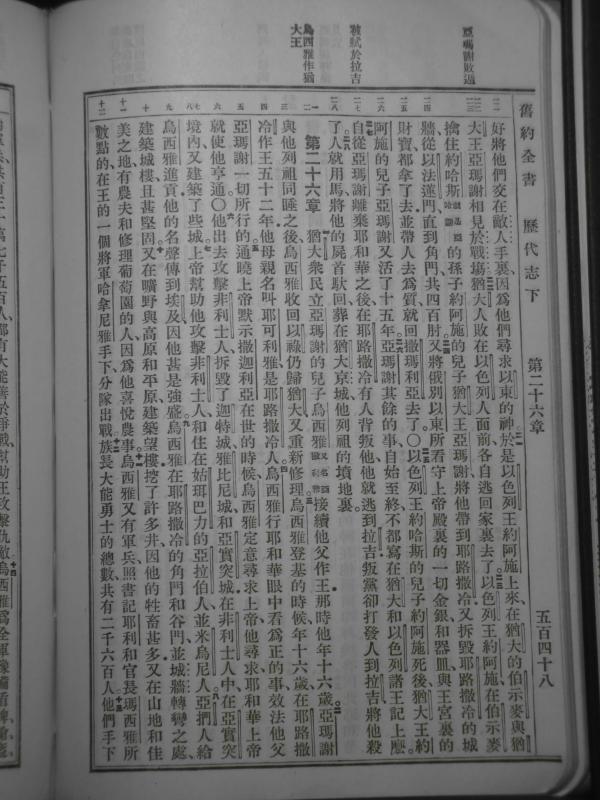 亞瑪謝敗遁
被弒於拉吉
烏西雅作猶
大王
舊約全書 歷代志下 第二十六章 五百四十八
好將他們交在敵人手裏因爲他們尋求以東的神於是以色列王約阿施上來在猶大的伯示麥與猶
大王亞瑪謝相見於戰場猶大人敗在以色列人面前各自逃回家裏去了以色列王約阿施在伯示麥
擒住約哈斯的孫子約阿施的兒子猶大王亞瑪謝將他帶到耶路撒冷又拆毀耶路撒冷的城
牆從以法蓮門直到角門共四百肘又將俄別以東所看守上帝殿裏的一切金銀和器皿與王宮裏的
財寶都拿了去並帶人去爲質就回撒瑪利亞去了○以色列王約哈斯的兒子約阿施死後猶大王約
阿施的兒子亞瑪謝又活了十五年亞瑪謝其餘的事自始至終不都寫在猶大和以色列諸王記上麽
自從亞瑪謝離棄耶和華之後在耶路撒冷有人背叛他他就逃到拉吉叛黨卻打發人到拉吉將他殺
了人就用馬將他的屍首馱回葬在猶大京城他列祖的墳地裏
第二十六章 猶大衆民立亞瑪謝的兒子烏西雅接續他父作王那時他年十六歲亞瑪謝
與他列祖同睡之後烏西雅收回以祿仍歸猶大又重新修理烏西雅登基的時候年十六歲在耶路撒
冷作王五十二年他母親名叫耶可利雅是耶路撒冷人烏西雅行耶和華眼中看爲正的事效法他父
亞瑪謝一切所行的通曉上帝默示撒迦利亞在世的時候烏西雅定意尋求上帝他尋求耶和華上帝
就使他亨通○他出去攻擊非利士人拆毀了迦特城雅比尼城和亞實突城在非利士人中在亞實突
境內又建築了些城上帝幫助他攻擊非利士人和住在姑珥巴力的亞拉伯人並米烏尼人亞捫人給
烏西雅進貢他的名聲傳到埃及因他甚是強盛烏西雅在耶路撒冷的角門和谷門並城牆轉彎之處
建築城樓且甚堅固又在曠野與高原和平原建築望樓挖了許多井因他的牲畜甚多又在山地和佳
美之地有農夫和修理葡萄園的人因爲他喜悅農事烏西雅又有軍兵照書記耶利和官長瑪西雅所
數點的在王的一個將軍哈拿尼雅手下分隊出戰族長大能勇士的總數共有二千六百人他們手下